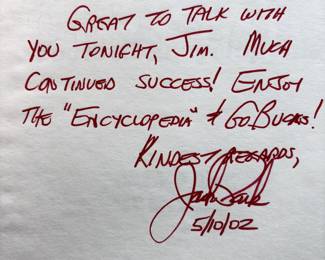 GREAT TO TALK WITH
YOU TONIGHT, JIM. MUCH
CONTINUED SUCCESS! ENJOY
THE "ENCYCLOPEDIA" & GO BUCKS!
KINDEST REGARDS,
5/10/02